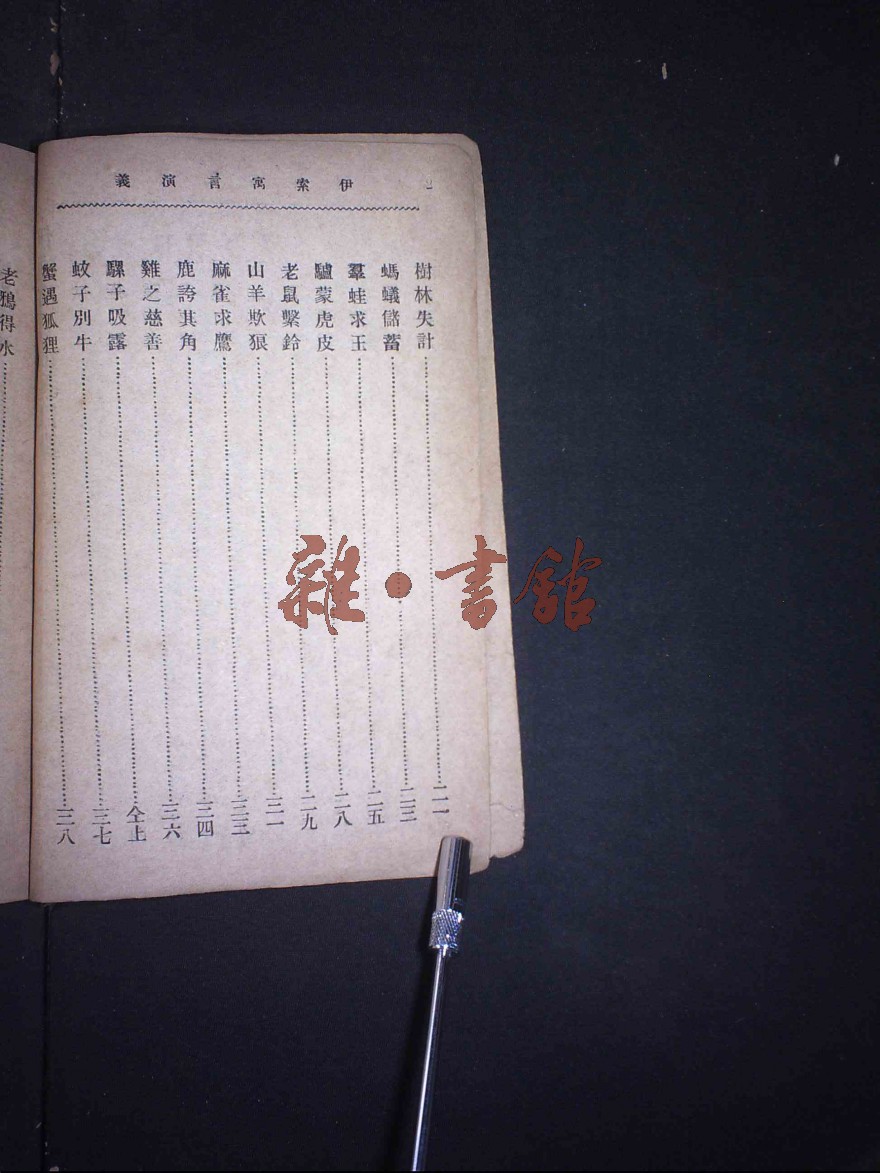 伊索寓言演義
樹林失計 二一
螞蟻儲蓄 二三
羣蛙求王 二五
驢蒙虎皮 二八
老鼠繫鈴 二九
山羊欺狼 三一
麻雀求鷹 三三
鹿誇其角 三四
雞之慈善 三六
騾子吸露 仝上
蚊子別牛 三七
蟹遇狐狸 三八
老鴉得水
雜·書館